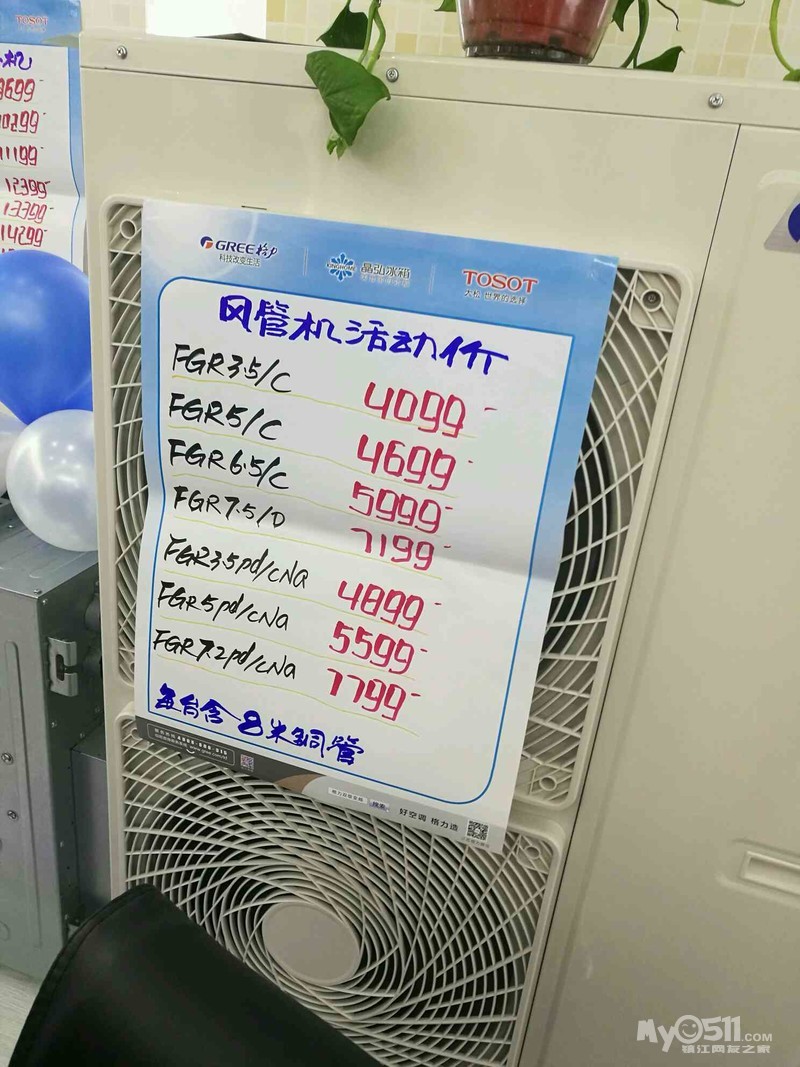 TOSOT
机
9699
10299
11199
12399
13399
14299
GREE 格力
科技改变生活
KINGHOME 晶弘冰箱
TOSOT
大松 世界的选择
风管机活动价
FGR3.5/C 4099-
FGR5/C 4699-
FGR6.5/C 5999-
FGR7.5/D 7199-
FGR3.5pd/cNa 4899-
FGR5pd/cNa 5599-
FGR7.2pd/cNa 7799-
每台含8米铜管
好空调 格力造
MyO511.COM
镇江网友之家